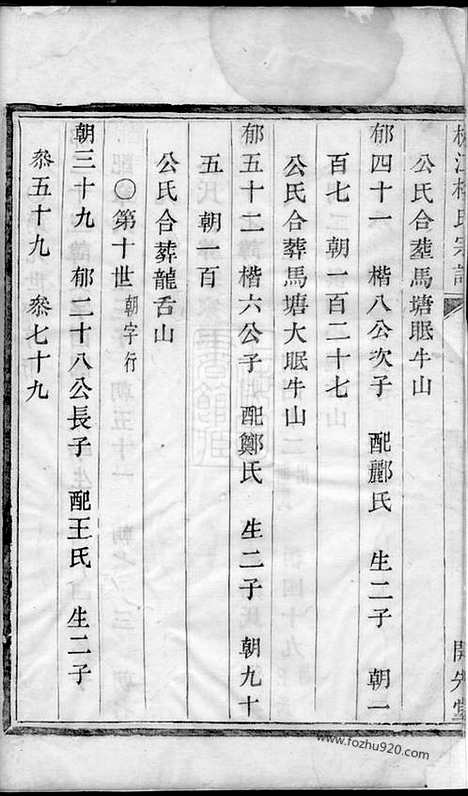 宗譜
開先堂
公氏合葬馬塘眠牛山
郁四十一 楷八公次子 配酈氏 生二子 朝一
百七 朝一百二十七
公氏合葬馬塘大眠牛山
郁五十二 楷六公子 配鄭氏 生二子 朝九十
五 朝一百
公氏合葬龍舌山
〇第十世 朝字行
朝三十九 郁二十八公長子 配王氏 生二子
叅五十九 叅七十九
www.fozhu920.com